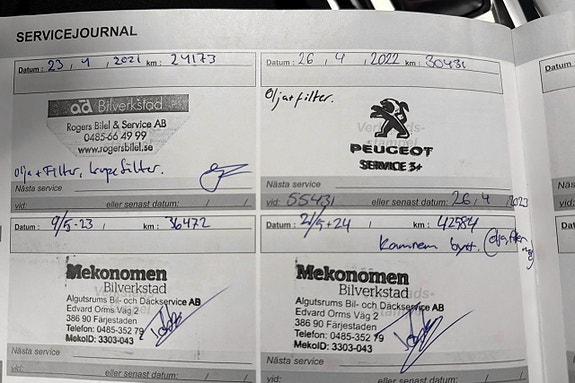 SERVICEJOURNAL
Datum: 23 / 4 / 2021 km: 24173
ad Bilverkstad
Rogers Bilel & Service AB
0485-66 49 99
www.rogersbilel.se
Olja + Filter, kupefilter.
Nästa service
vid: eller senast datum: / /
Datum: 26 / 4 / 2022 km: 30431
Olja+filter.
PEUGEOT
SERVICE 3+
Nästa service
vid: 55431 eller senast datum: 26 / 4 / 2023
Datum: 9/5-23 / km: 36472
Mekonomen
Bilverkstad
Algutsrums Bil- och Däckservice AB
Edvard Orms Väg 2
386 90 Färjestaden
Telefon: 0485-352 79
MekoID: 3303-043
Nästa service
vid: eller senast datum: / /
Datum: 21/5-24 / km: 42584
Kamrem bytt.
Mekonomen
Bilverkstad
Algutsrums Bil- och Däckservice AB
Edvard Orms Väg 2
386 90 Färjestaden
Telefon: 0485-352 79
MekoID: 3303-043
Nästa service
vid: eller senast datum: / /
Datum
Nästa
vid:
Datum: